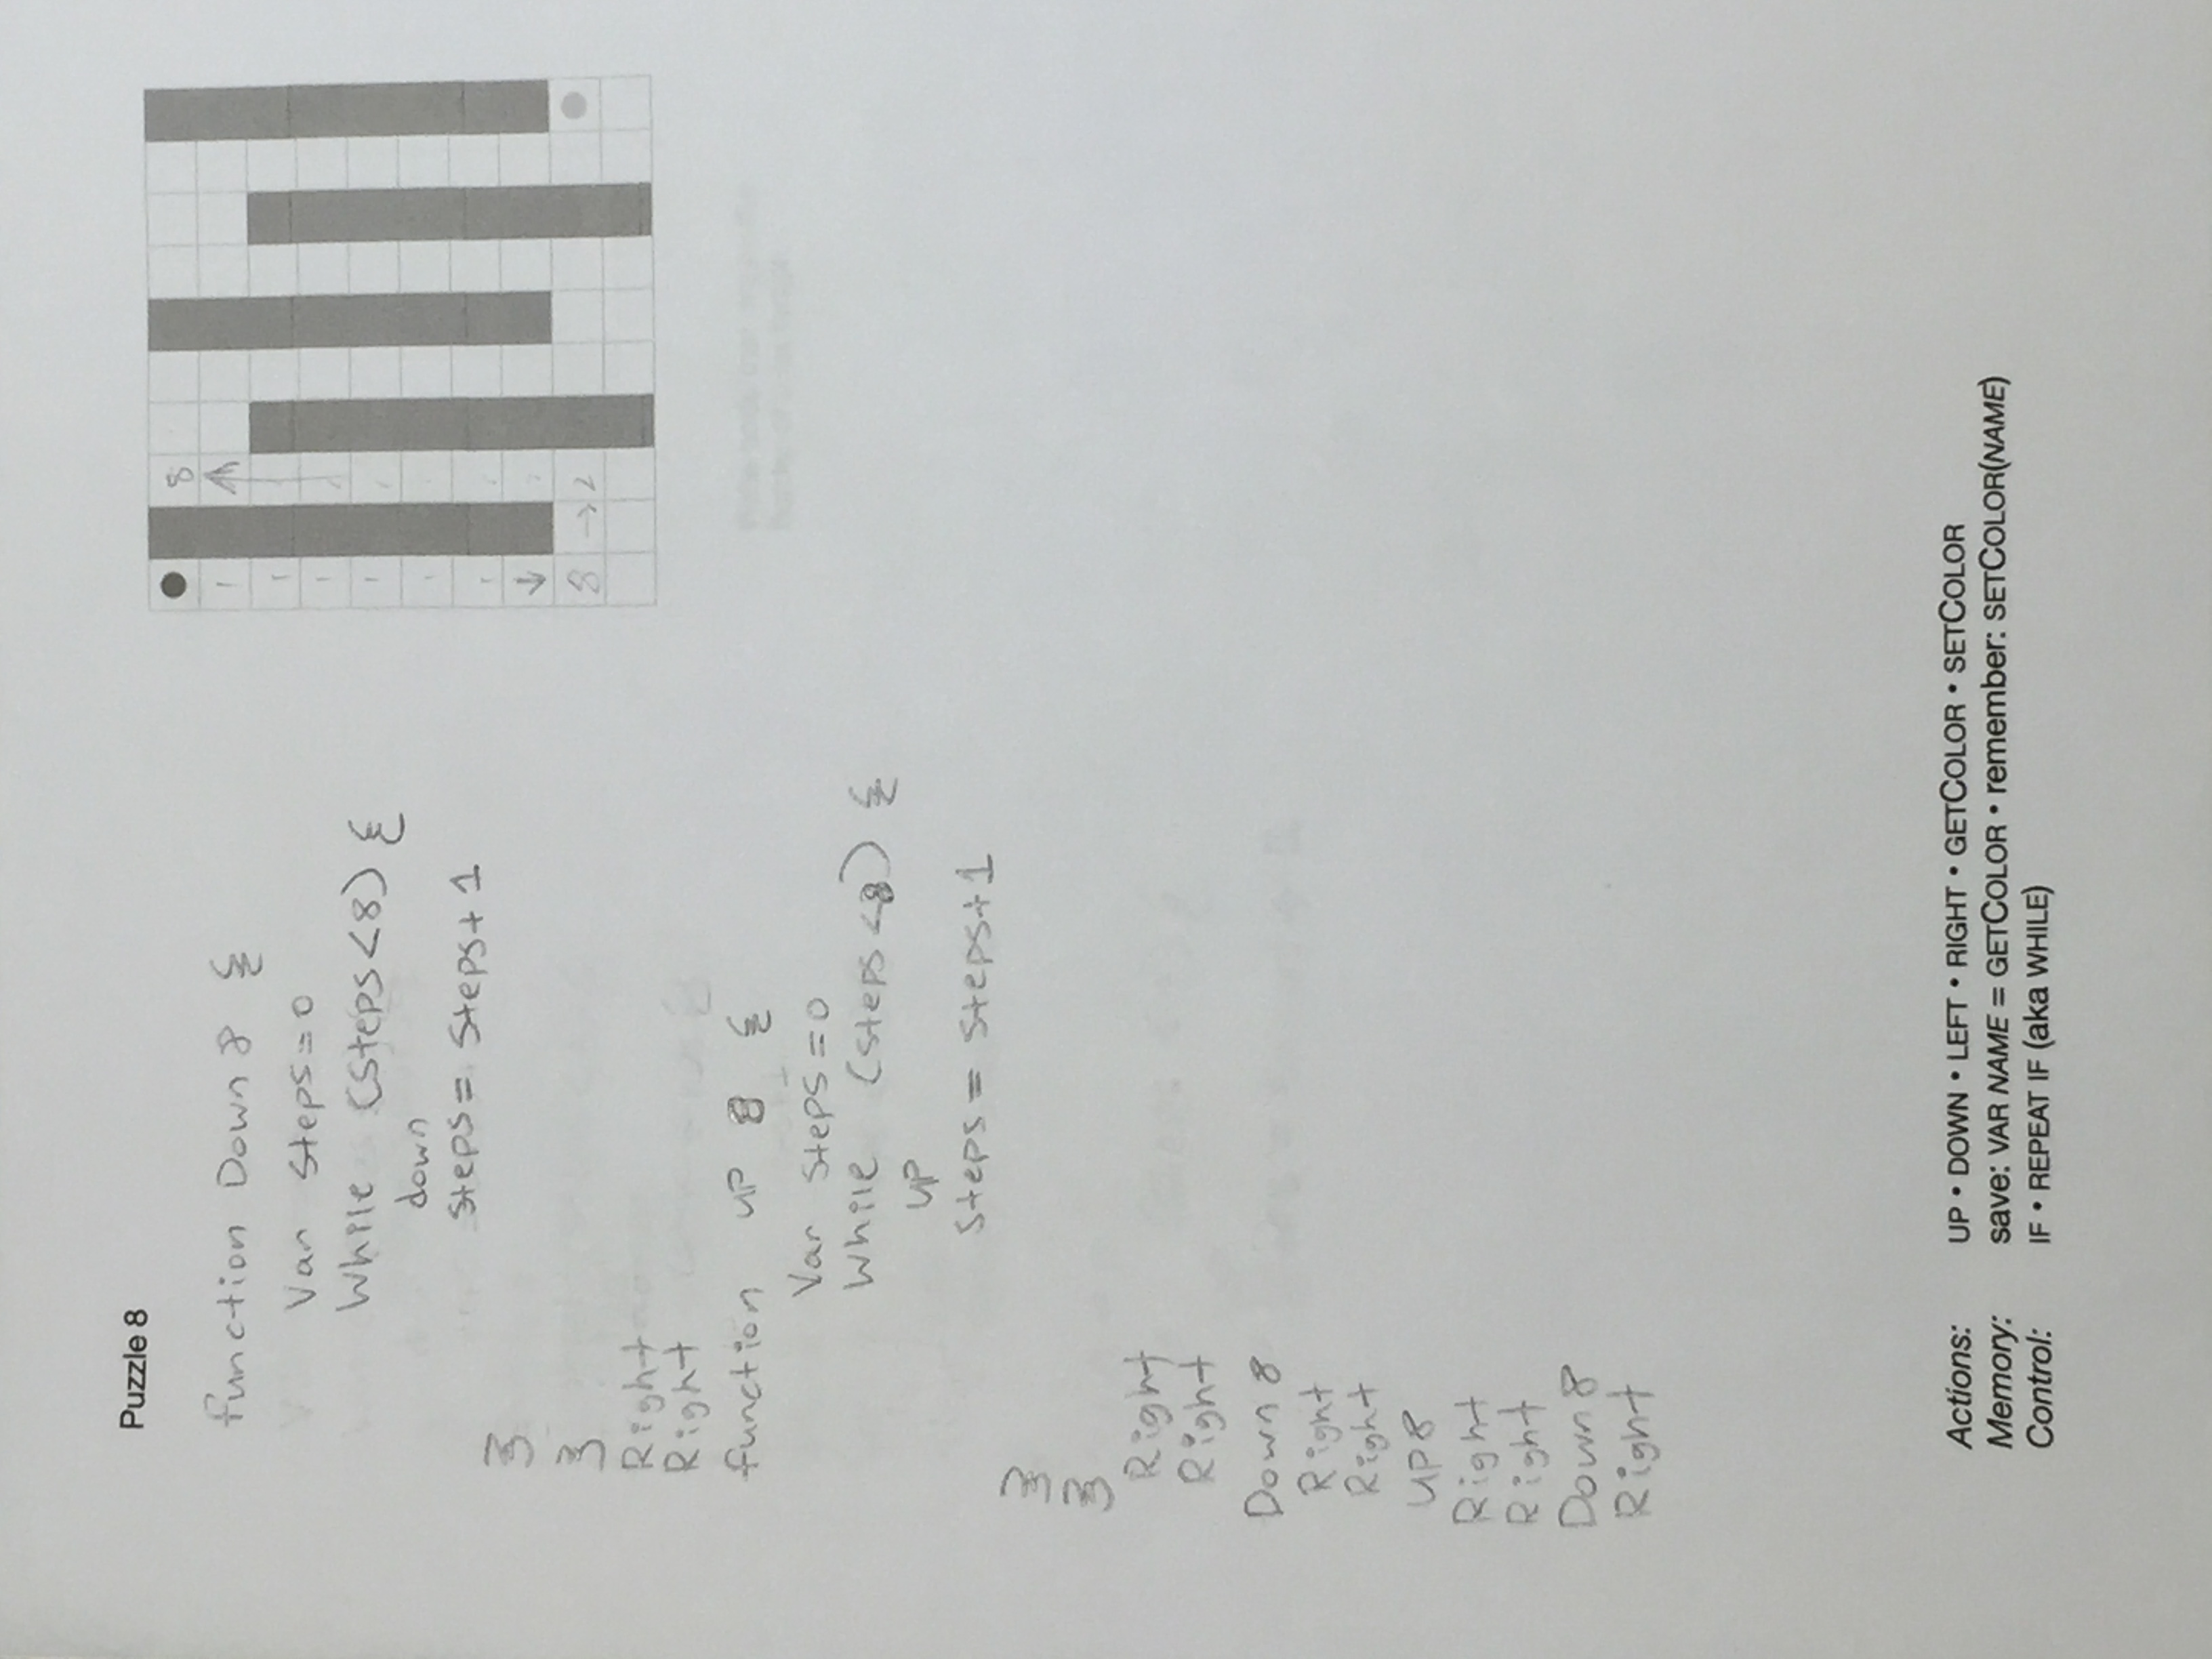 Puzzle 8
function Down 8 {
Var steps=0
While (steps<8) {
down
steps= steps+1
}
}
Right
Right
function up 8 {
Var steps=0
While (steps<8) {
up
steps= steps+1
}
}
Right
Right
Down 8
Right
Right
up8
Right
Right
Down 8
Right
8
8 →2
Actions: UP • DOWN • LEFT • RIGHT • GETCOLOR • SETCOLOR
Memory: save: VAR NAME = GETCOLOR • remember: SETCOLOR(NAME)
Control: IF • REPEAT IF (aka WHILE)